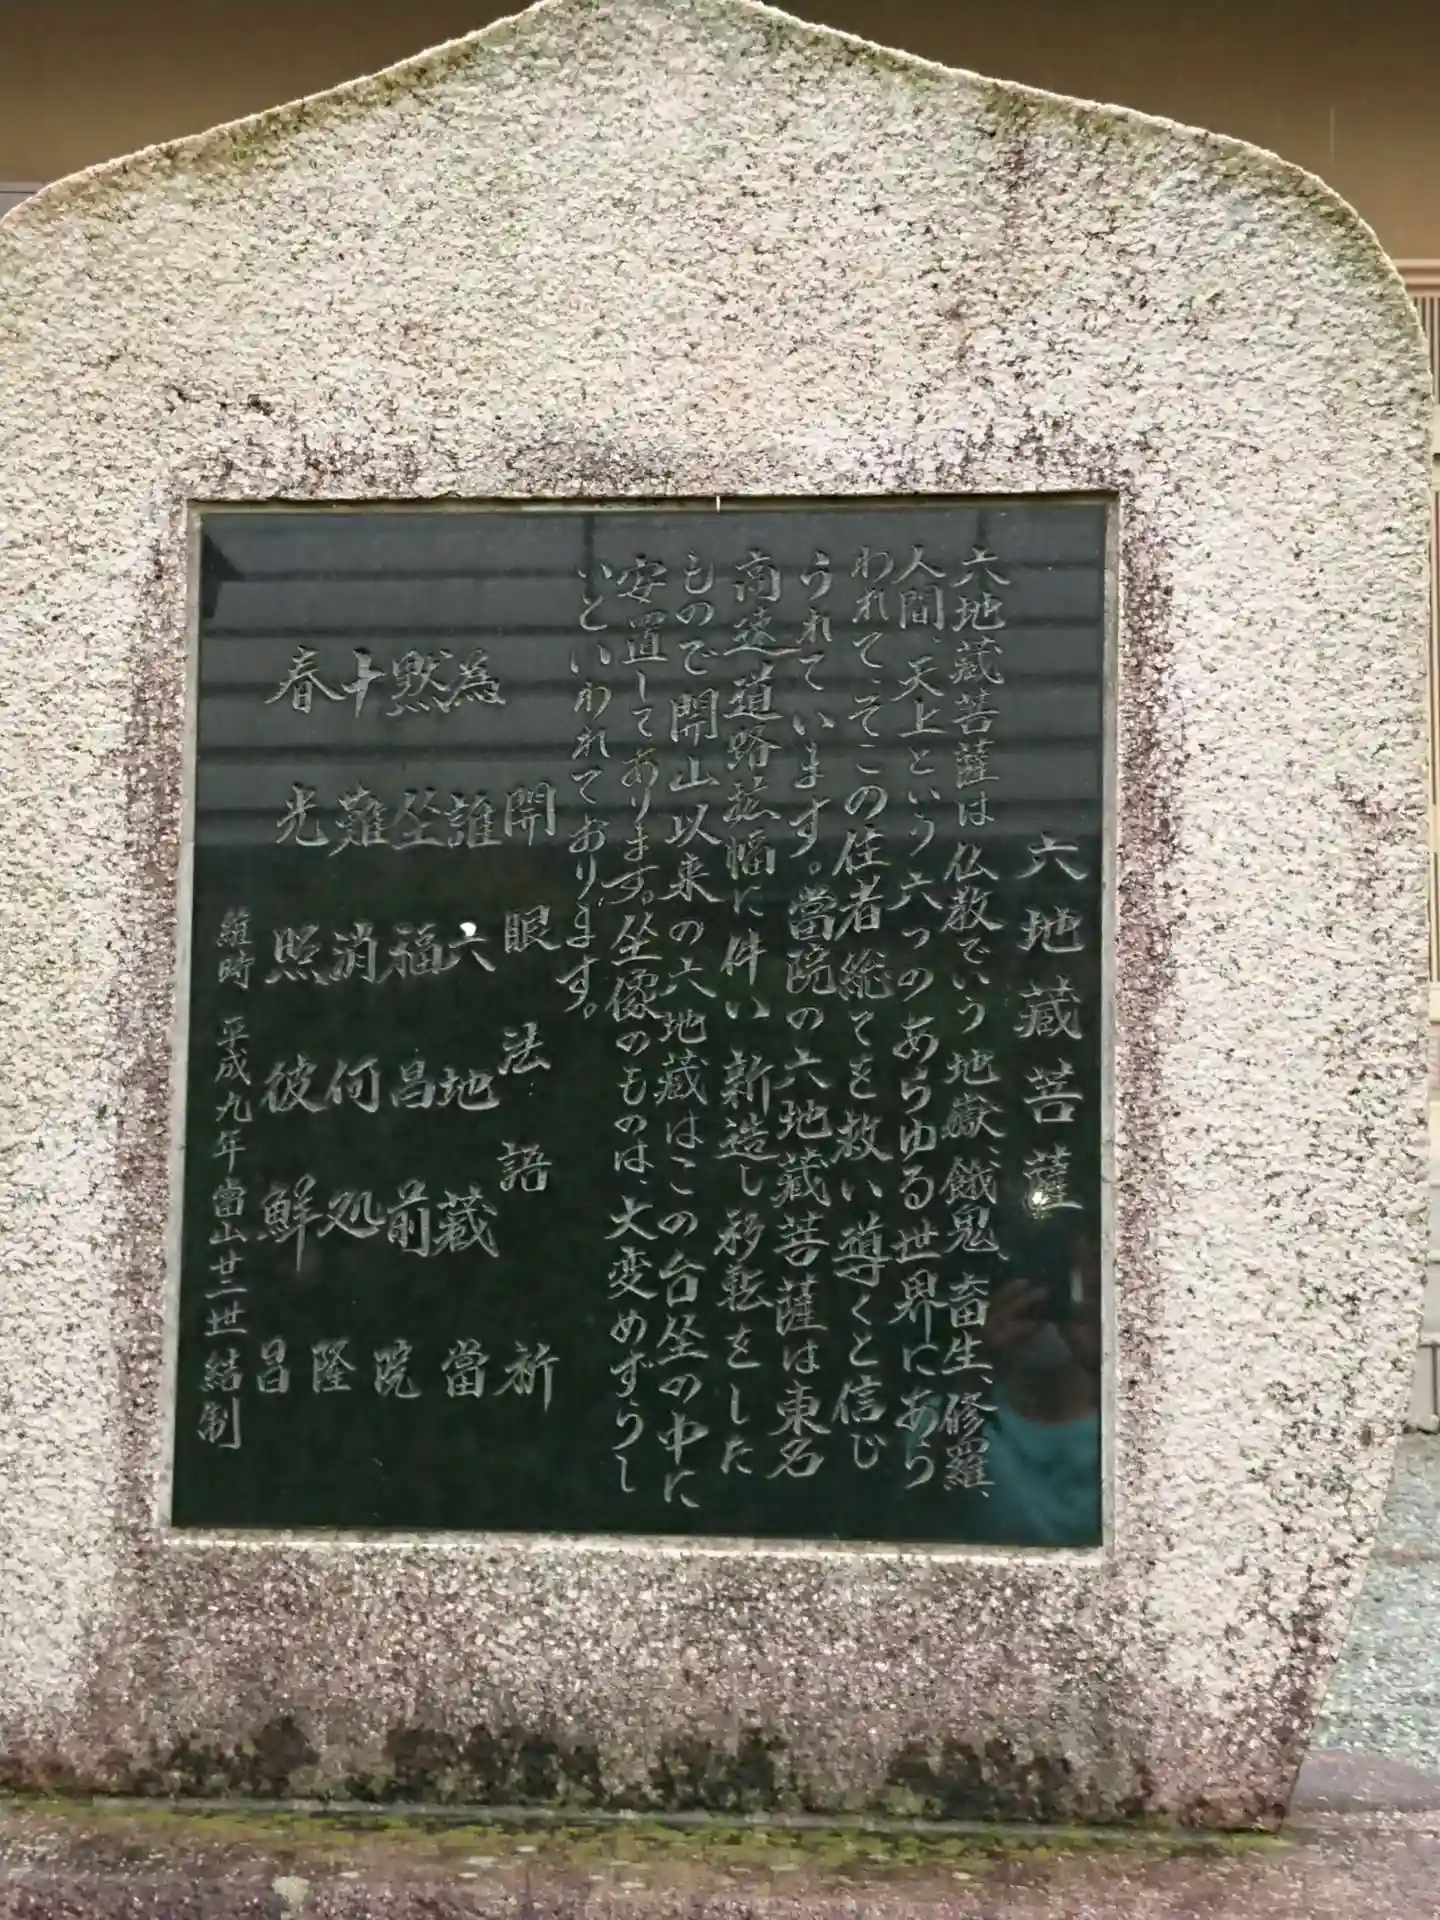 六地蔵菩薩
六地蔵菩薩は仏教でいう地嶽、餓鬼、畜生、修羅、
人間、天上という六つのあらゆる世界にあら
われて、そこの住者総てを救い導くと信じ
られています。當院の六地蔵菩薩は東名
高速道路拡幅に伴い新造し移転をした
もので開山以来の六地蔵はこの台坐の中に
安置してあります。坐像のものは、大変めずらし
いといわれております。
開眼法語 祈
為誰六地蔵 當
黙坐福昌前 院
十難消何処 隆
春光照彼鮮 昌
維時 平成九年當山廿二世 結制